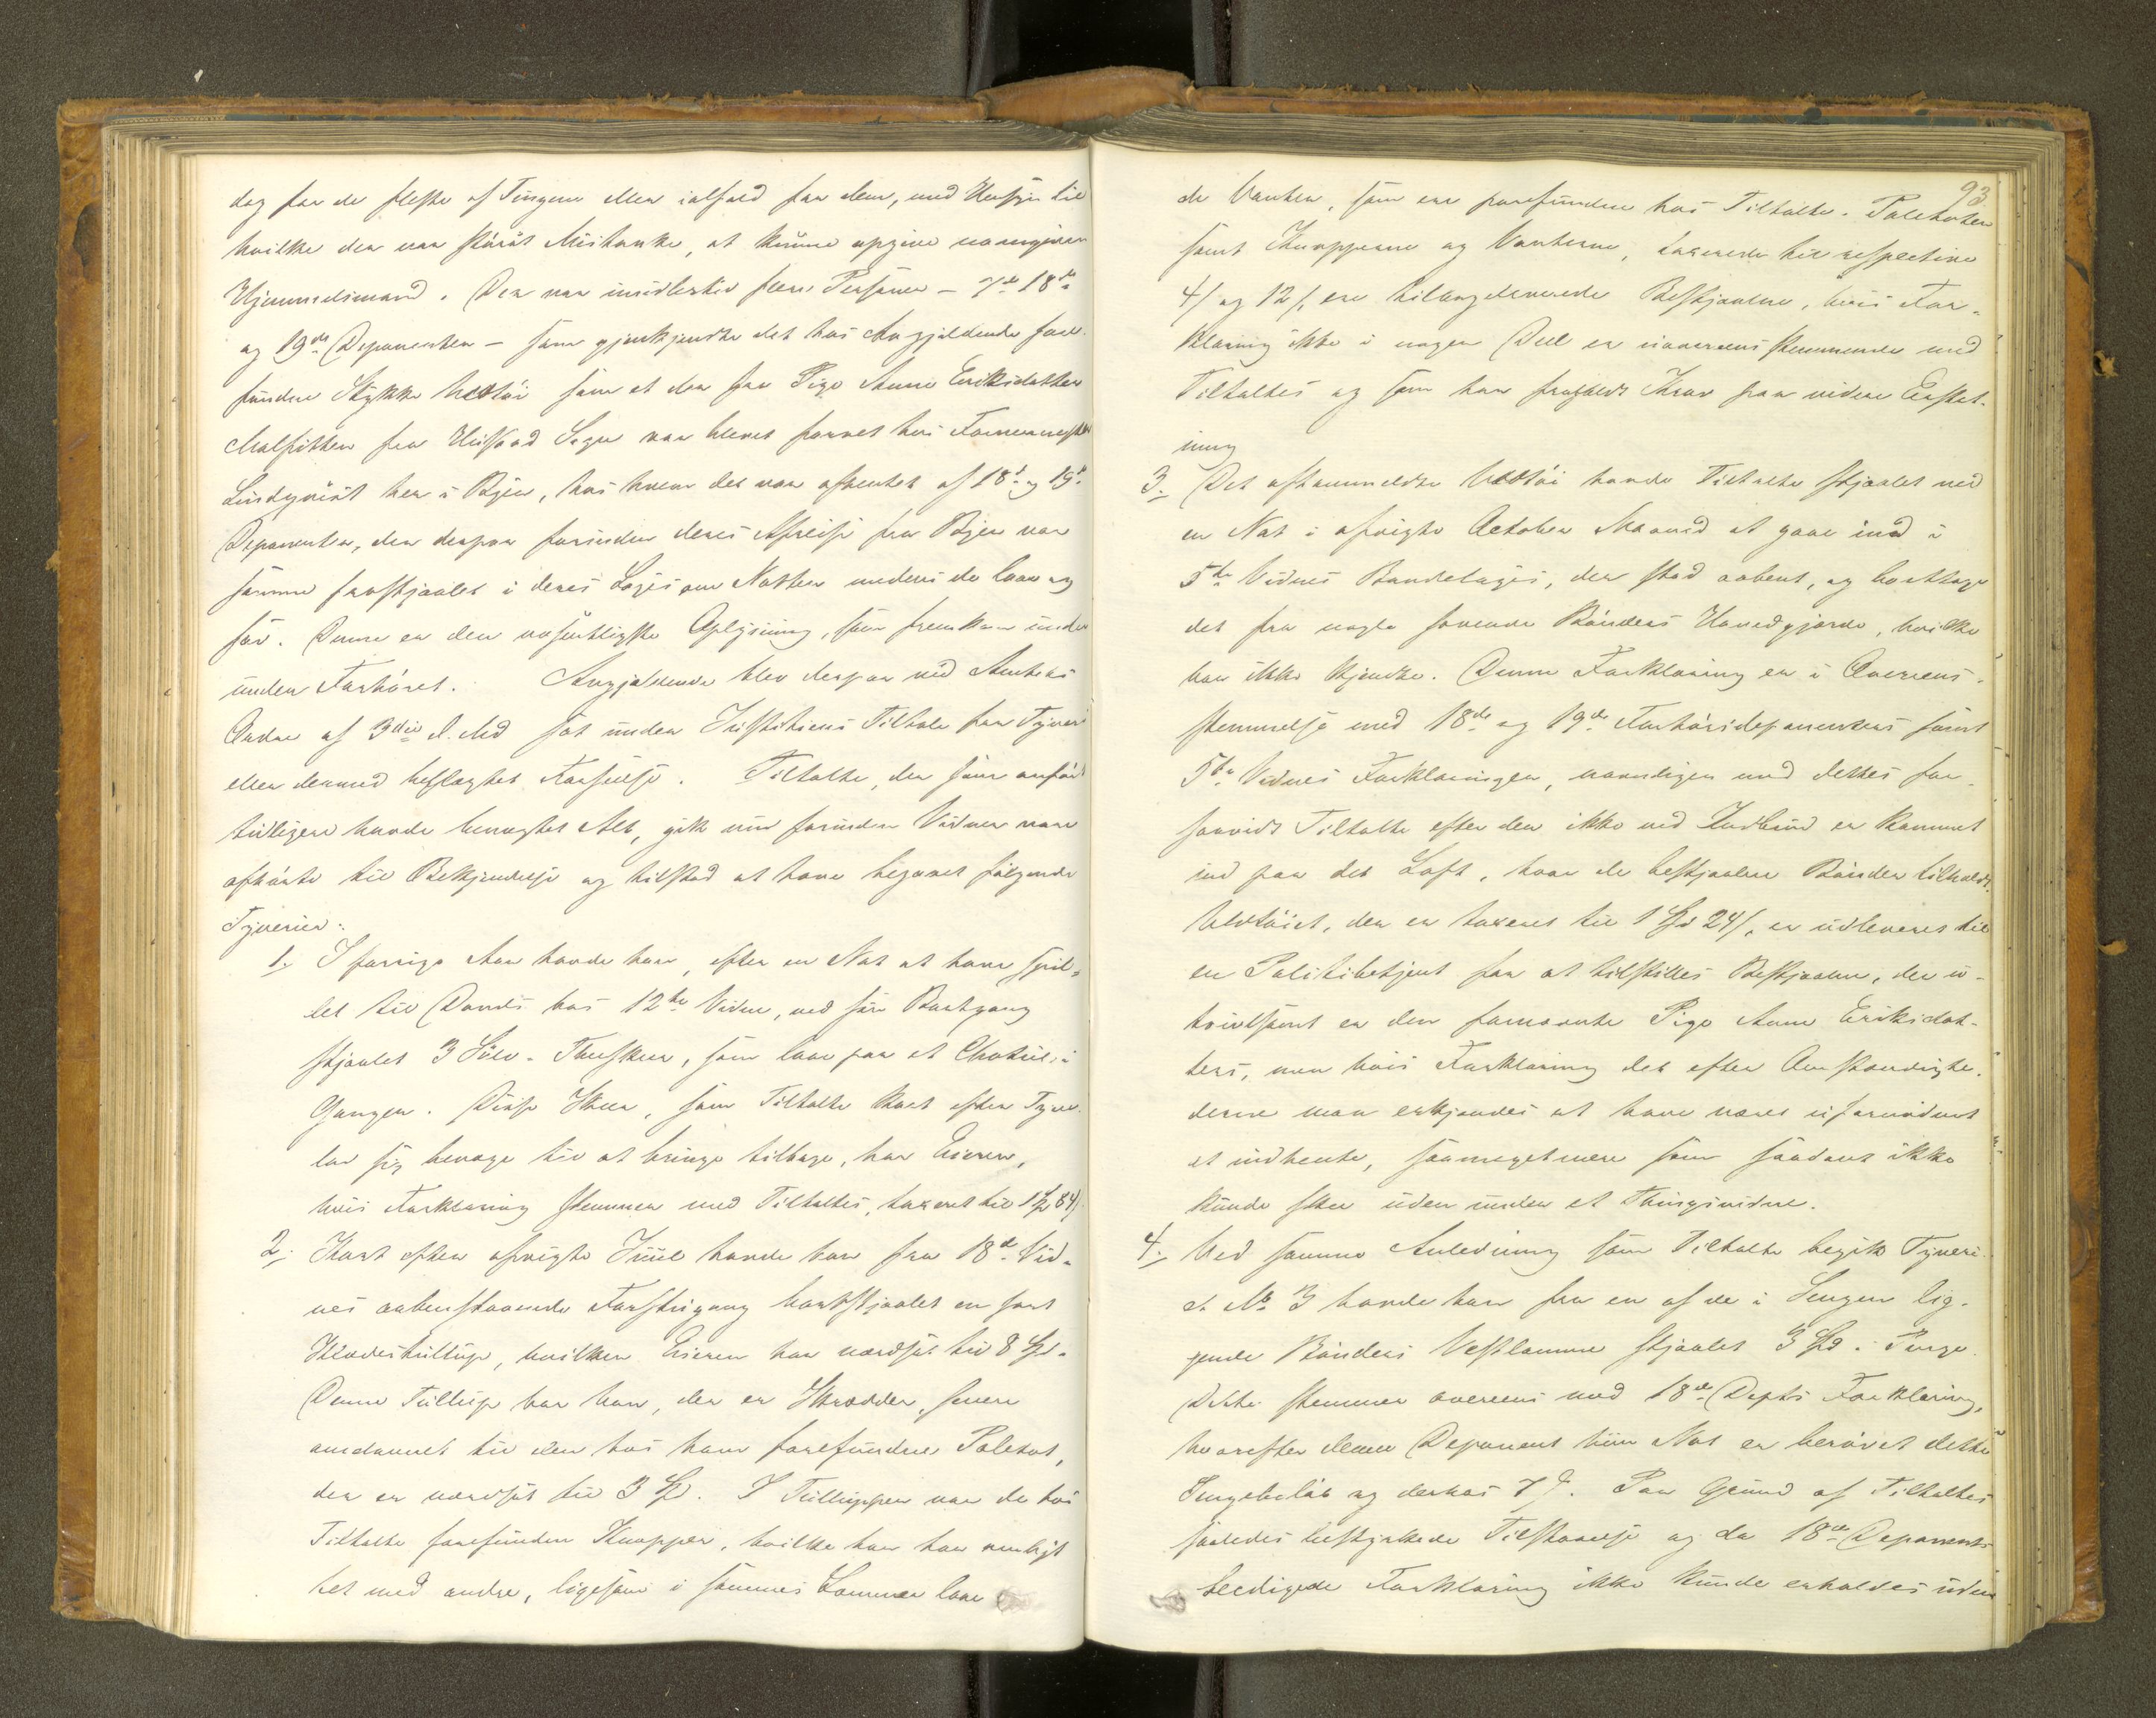 dog for de fleste af Tingene eller ialfald for dem, med Hensyn til
hvilke der var størst Mistanke, at kunne opgive navngiven
Hjemmelsmand. Der var imidlertid flere Personer – 7de 18de
og 19de Deponenter – som gjenkjendte det hos Angjældende fore-
fundne Stykke Uldtøi som et der for Pige Anne Eriksdatter
fra Sogn var blevet farvet hos Farvermester
Lindqvist her i Byen, hos hvem det var afhentet af 18de og 19de
Deponenter, der derpaa forinden deres Afreise fra Byen var
samme frastjaalet i deres Logis om Natten medens de laae og
sov. Denne er den væsentligste Oplysning, som fremkom under
under Forhøret. Angjældende blev derpaa ved Amtets
Ordre af 3die d. Md sat under Justitiens Tiltale for Tyveri
eller dermed beslægtet Forseelse. Tiltalte, der som anført
tidligere havde benægtet Alt, gik nu forinden Vidner vare
afhørte til Bekjendelse og tilstod at have begaaet følgende
Tyverier:
1. I forrige Aar havde han, efter en Nat at have spil-
let til Dands hos 12te Vidne, ved sin Bortgang
stjaalet 3 Sølv-Theskeer, som laae paa et Chatul i
Gangen. Disse Skeer, som Tiltalte kort efter Tyve-
lod sig bevæge til at bringe tilbage, har Eieren,
hvis Forklaring stemmer med Tiltaltes, taxeret til 1 Spd 84 s.
2. Kort efter afvigte Juul havde han fra 18de Vid-
nes aabenstaaende Forstugang bortstjaalet en sort
Klædestullup, hvilken Eieren har værdsat til 8 Spd.
Denne Tullup har han, der er Skrædder, senere
omdannet til den hos ham forefundne Paletot,
der er værdsat til 3 Spd. I Tulluppen var de hos
Tiltalte forefunden Knapper, hvilke han har ombyt-
tet med andre, ligesom i sammes Lommer laae
93.
de Vanter, som ere forefundne hos Tiltalte. Paletoten
samt Knapperne og Vanterne, taxerede til respective
4 s og 12 s, ere tilbageleverede Bestjaalne, hvis For-
klaring ikke i nogen Deel er uovereensstemmende med
Tiltaltes og som har frafaldt Krav paa videre Erstat-
ning
3. Det ommeldte Uldtøi havde Tiltalte stjaalet ved
en Nat i afvigte October Maaned at gaae ind i
5te Vidnes Bondelogis, der stod aabent, og borttage
det fra nogle sovende Bønders Hovedgjærde, hvilke
han ikke kjendte. Denne Forklaring er i Overeens-
stemmelse med 18de og 19de Forhørsdeponenters samt
5te Vidnes Forklaringer, navnligen med dettes for-
saavidt Tiltalte efter den ikke ved Indbrud er kommet
ind paa det Loft, hvor de bestjaalne Bønder tilholdt.
Uldtøiet, der er taxeret til 1 Spd 24 s, er udleveret til
en Politibetjent for at tilstilles Bestjaalne, der u-
tvivlsomt er den fornævnte Pige Anne Eriksdat-
ters, men hvis Forklaring det efter Omstændighe-
derne maa erkjendes at have været ufornødent
at indhente, saameget mere som saadant ikke
kunde skee uden under et Thingsvidne.
4. Ved samme Anledning som Tiltalte begik Tyveri-
et No 3 havde han fra en af de i Sengen lig-
gende Bønders Vestlomme stjaalet 3 Spd i Penge.
Dette stemmer overeens med 18de Depts Forklaring,
hvorefter denne Deponent hiin Nat er berøvet dette
Pengebeløb og derhos 7 s. Paa Grund af Tiltaltes
saaledes bestyrkede Tilstaaelse og da 18de Deponents
beedigede Forklaring ikke kunde erholdes uden